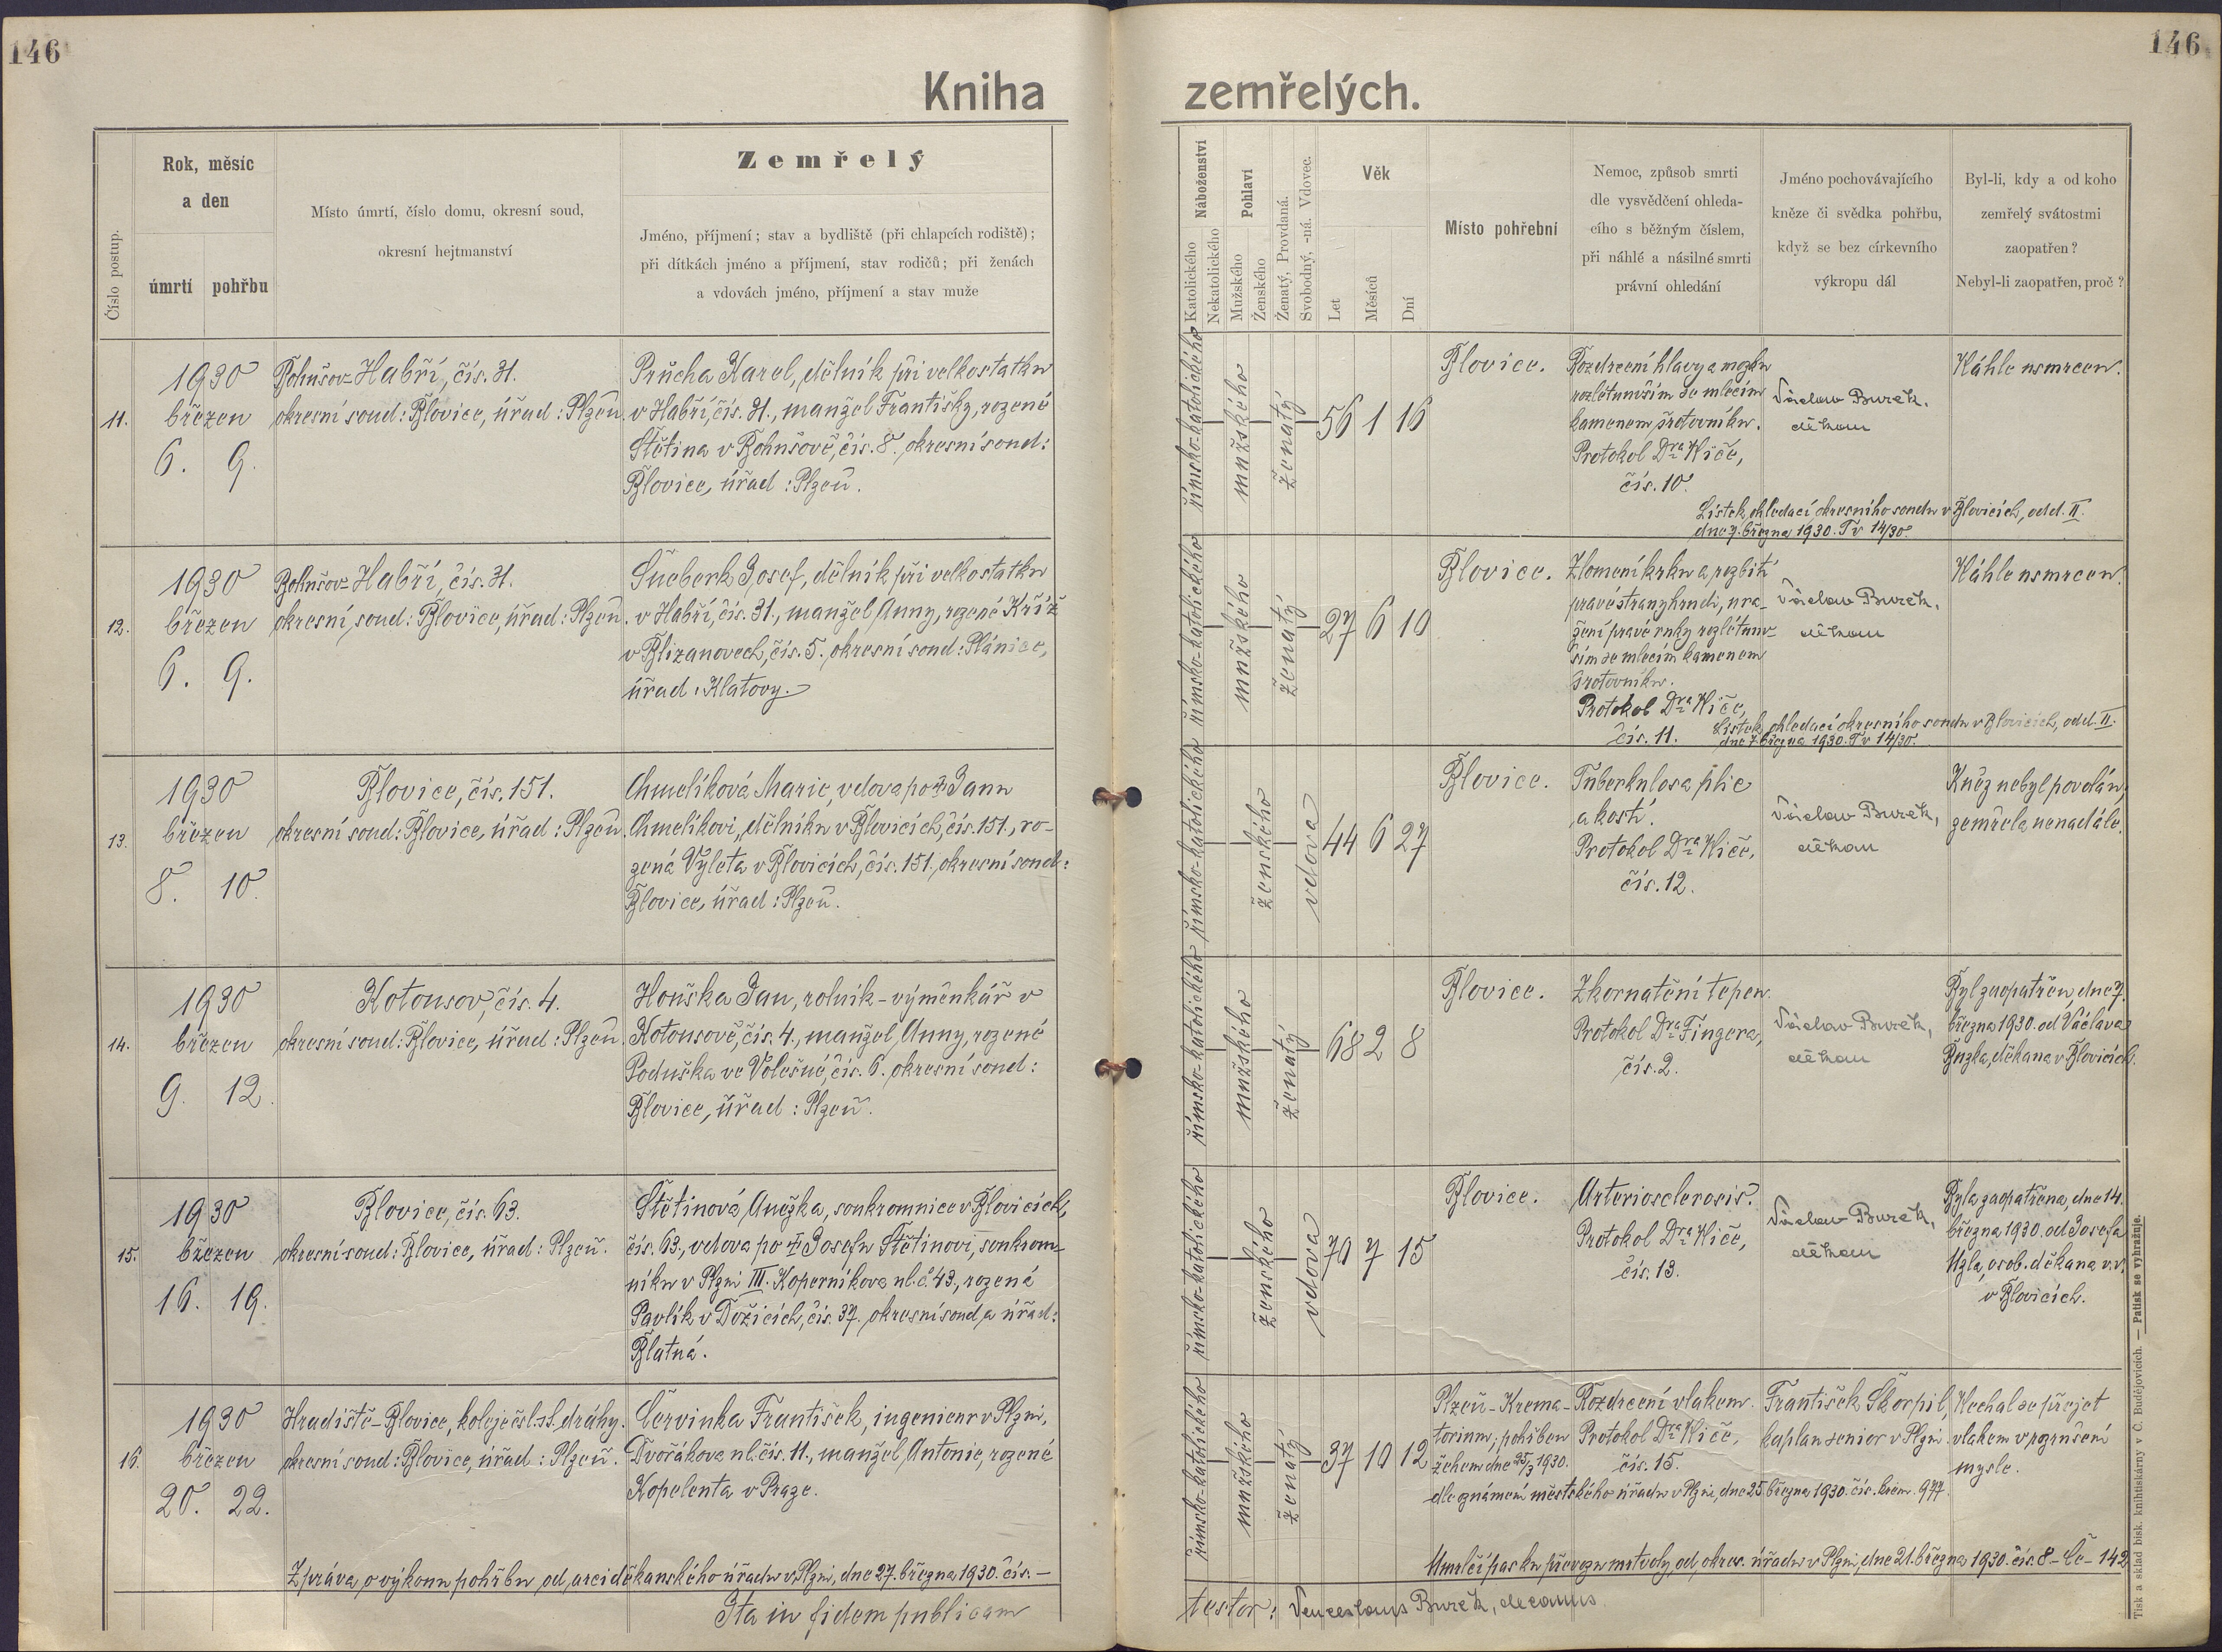 146
146
Kniha zemřelých.
Číslo postup.
Rok, měsíc
a den
úmrtí pohřbu
Místo úmrtí, číslo domu, okresní soud,
okresní hejtmanství
Zemřelý
Jméno, příjmení; stav a bydliště (při chlapcích rodiště);
při dítkách jméno a příjmení, stav rodičů; při ženách
a vdovách jméno, příjmení a stav muže
Náboženství
Katolického
Nekatolického
Pohlaví
Mužského
Ženského
Ženatý, Provdaná.
Svobodný, -ná. Vdovec.
Věk
Let
Měsíců
Dní
Místo pohřební
Nemoc, způsob smrti
dle vysvědčení ohleda-
cího s běžným číslem,
při náhlé a násilné smrti
právní ohledání
Jméno pochovávajícího
kněze či svědka pohřbu,
když se bez církevního
výkropu dál
Byl-li, kdy a od koho
zemřelý svátostmi
zaopatřen?
Nebyl-li zaopatřen, proč?
11.
1930
březen
6. 9.
Bohušov-Habří, čís. 31.
okresní soud: Blovice, úřad: Plzeň.
Průcha Karel, dělník při velkostatku
v Habří, čís. 31., manžel Františky, rozené
Štětina v Bohušově, čís. 8. okresní soud:
Blovice, úřad: Plzeň.
římsko-katolického
mužského
ženatý
56 1 16
Blovice.
Rozdrcení hlavy a mozku
rozlétnuvším se mlecím
kamenem šrotovníku.
Protokol Dra Kiče,
čís. 10.
Lístek ohledací okresního soudu v Blovicích, odd. II.
dne 7. března 1930. Tr 14/30.
Václav Burek,
děkan
Náhle usmrcen.
12.
1930
březen
6. 9.
Bohušov-Habří, čís. 31.
okresní soud: Blovice, úřad: Plzeň.
Josef, dělník při velkostatku
v Habří, čís. 31., manžel Anny, rozené Kříž
v Blizanovech, čís. 5. okresní soud: Plánice,
úřad: Klatovy.
římsko-katolického
mužského
ženatý
27 6 10
Blovice.
Zlomení krku a rozbití
pravé strany hrudi, ura-
žení pravé ruky rozlétnuv-
ším se mlecím kamenem
šrotovníku.
Protokol Dra Kiče,
čís. 11.
Lístek ohledací okresního soudu v Blovicích, odd. II.
dne 7. března 1930. Tr 14/30.
Václav Burek,
děkan
Náhle usmrcen.
13.
1930
březen
8. 10.
Blovice, čís. 151.
okresní soud: Blovice, úřad: Plzeň.
Chmelíková Marie, vdova po † Janu
Chmelíkovi, dělníku v Blovicích, čís. 151., ro-
zená Výleta v Blovicích, čís. 151., okresní soud:
Blovice, úřad: Plzeň.
římsko-katolického
ženského
vdova
44 6 27
Blovice.
Tuberkulosa plic
a kostí.
Protokol Dra Kiče,
čís. 12.
Václav Burek,
děkan
Kněz nebyl povolán,
zemřela nenadále.
14.
1930
březen
9. 12.
Kotousov, čís. 4.
okresní soud: Blovice, úřad: Plzeň.
Houška Jan, rolník-výměnkář v
Kotousově, čís. 4., manžel Anny, rozené
Poduška ve Volešné, čís. 6. okresní soud:
Blovice, úřad: Plzeň.
římsko-katolického
mužského
ženatý
68 2 8
Blovice.
Zkornatění tepen.
Protokol Dra Fingera,
čís. 2.
Václav Burek,
děkan
Byl zaopatřen, dne 7.
března 1930. od Václava
děkana v Blovicích.
15.
1930
březen
16. 19.
Blovice, čís. 63.
okresní soud: Blovice, úřad: Plzeň.
Štětinová Anežka, soukromnice v Blovicích,
čís. 63., vdova po † Josefu Štětinovi, soukrom-
níku v Plzni III. Koperníkova ul. č. 43., rozená
Pavlík v Dožicích, čís. 37. okresní soud a úřad:
Blatná.
římsko-katolického
ženského
vdova
70 7 15
Blovice.
Arteriosclerosis.
Protokol Dra Kiče,
čís. 13.
Václav Burek,
děkan
Byla zaopatřena, dne 14.
března 1930. od Josefa
Uzla, osob. děkana v.v.
v Blovicích.
16.
1930
březen
20. 22.
Hradiště-Blovice, koleje čsl. st. dráhy.
okresní soud: Blovice, úřad: Plzeň.
Červinka František, ingenieur v Plzni,
Dvořákova ul. čís. 11., manžel Antonie, rozené
Kopelenta v Praze.
římsko-katolického
mužského
ženatý
37 10 12
Plzeň-Krema-
torium; pohřben
žehem dne 25/3 1930.
dle oznámení městského úřadu v Plzni, dne 25. března 1930. čís. krem. 977.
Rozdrcení vlakem.
Protokol Dra Kiče,
čís. 15.
František Škorpil,
kaplan senior v Plzni.
Nechal se přejet
vlakem v pozrušení
mysle.
Zpráva o výkonu pohřbu od arciděkanského úřadu v Plzni, dne 27. března 1930. čís. —
Umrlčí pas ku převozu mrtvoly, od okres. úřadu v Plzni, dne 21. března 1930. čís. 8-Če-142
Ita in fidem publicam testor: Venceslaus Burek, decanus
Tisk a sklad bisk. knihtiskárny v Č. Budějovicích. — Patisk se vyhražuje.